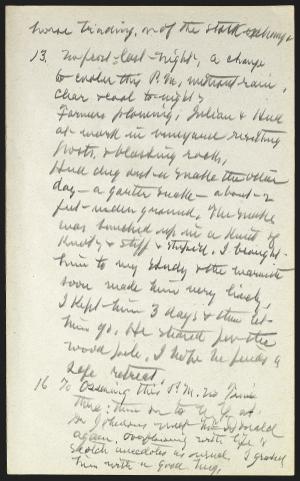 horse trading, or of the stock exchange
13. No frost last night, a change
to cooler this P.M., without rain,
clear & cool to-night.
Farmers plowing; Julian & Hud
at work in vineyard resetting
posts, & blasting rocks,
Hud dug out a snake the other
day — a garter snake — about 2
feet under ground. The snake
was bunched up in a kind of
knot, & stiff & stupid. I brought
him to my study & the warmth
soon made him very lively,
I kept him 3 days & then let
him go. He started for the
wood pile. I hope he finds a
safe retreat.
16 To Ossining this P.M. no
there; then on to N. Y. at
Dr Johnsons meet McDonald
again, overflowing with life &
Scotch anecdotes as usual. I greeted
him with a good hug.